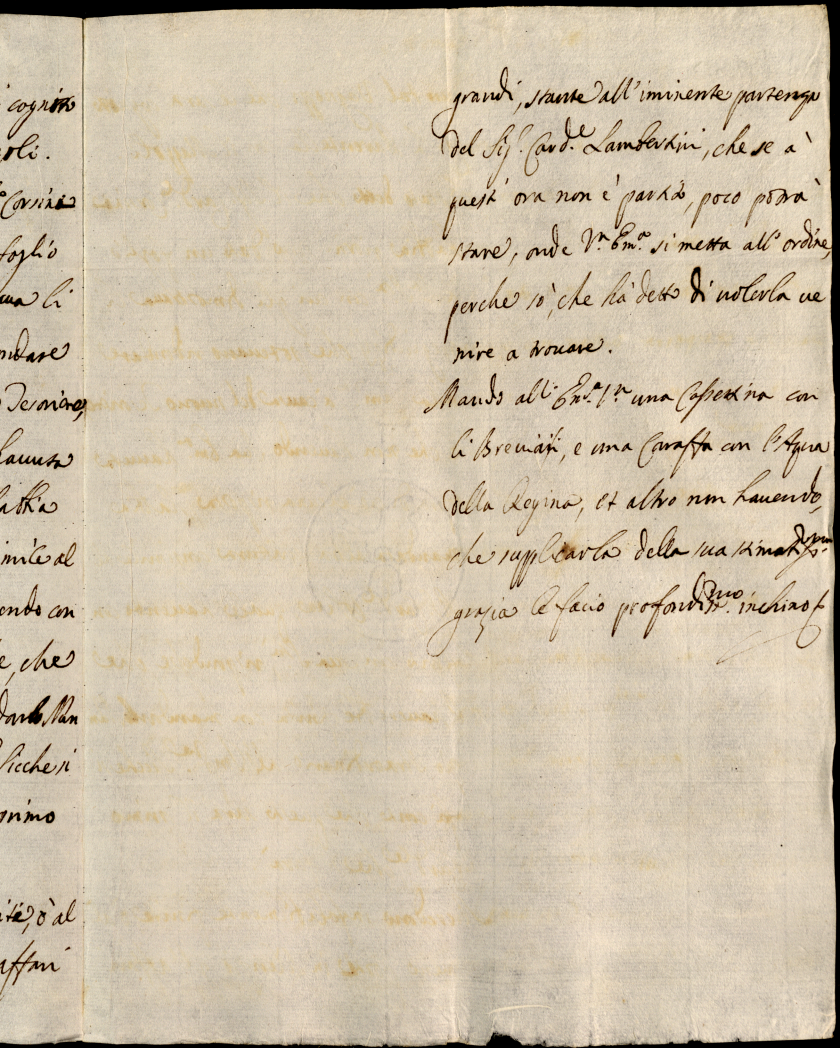 cognito
oli.
Corsini
foglio
ua li
ndare
Tesoriere,
havuta
fatta
imile al
endo con
e, che
Sicche si
primo
ite, ò al
affari
grandi, stante all'iminente partenza
del Sig.r Card.e Lambertini, che se à
quest' ora non è partito, poco potrà
stare, onde V.ra Em.a si metta all' ordine,
perche sò, che hà detto di volerla ve
nire a trovare.
Mando all' Em.a V.ra una Cassettina con
li Breviari, e una Caraffa con l'Aqua
della Regina, et altro non havendo,
che supplicarla della sua
grazia le facio profondiss.mo inchino